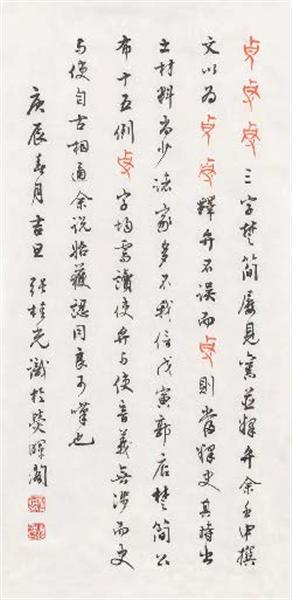 三字楚簡屢見舊並釋弁余壬申撰
文以為釋弁不誤而則當釋史其時出
土材料尚少諸家多不我信戊寅郭店楚簡公
布十五例字均需讀使弁与使音義無涉而史
与使自古相通余說始獲認同良可嘆也
庚辰春月吉旦 張桂光識於暉閣